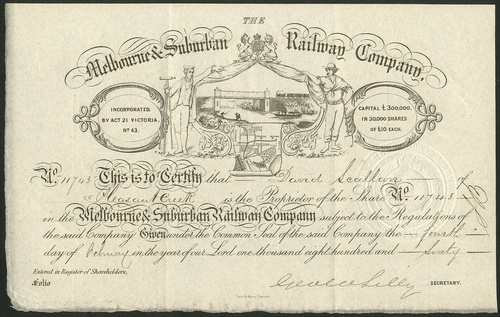 THE
Melbourne & Suburban Railway Company,
INCORPORATED
BY ACT 21 VICTORIA,
No. 43.
CAPITAL £300,000,
IN 30,000 SHARES
OF £10 EACH.
No. 11743 This is to Certify that David Scallan of
Pleasant Creek is the Proprietor of the Share No. 11743
in the Melbourne & Suburban Railway Company subject to the Regulations of
the said Company Given under the Common Seal of the said Company the Fourth
day of February in the year of our Lord one thousand eight hundred and Sixty
Entered in Register of Shareholders,
Folio
SECRETARY.